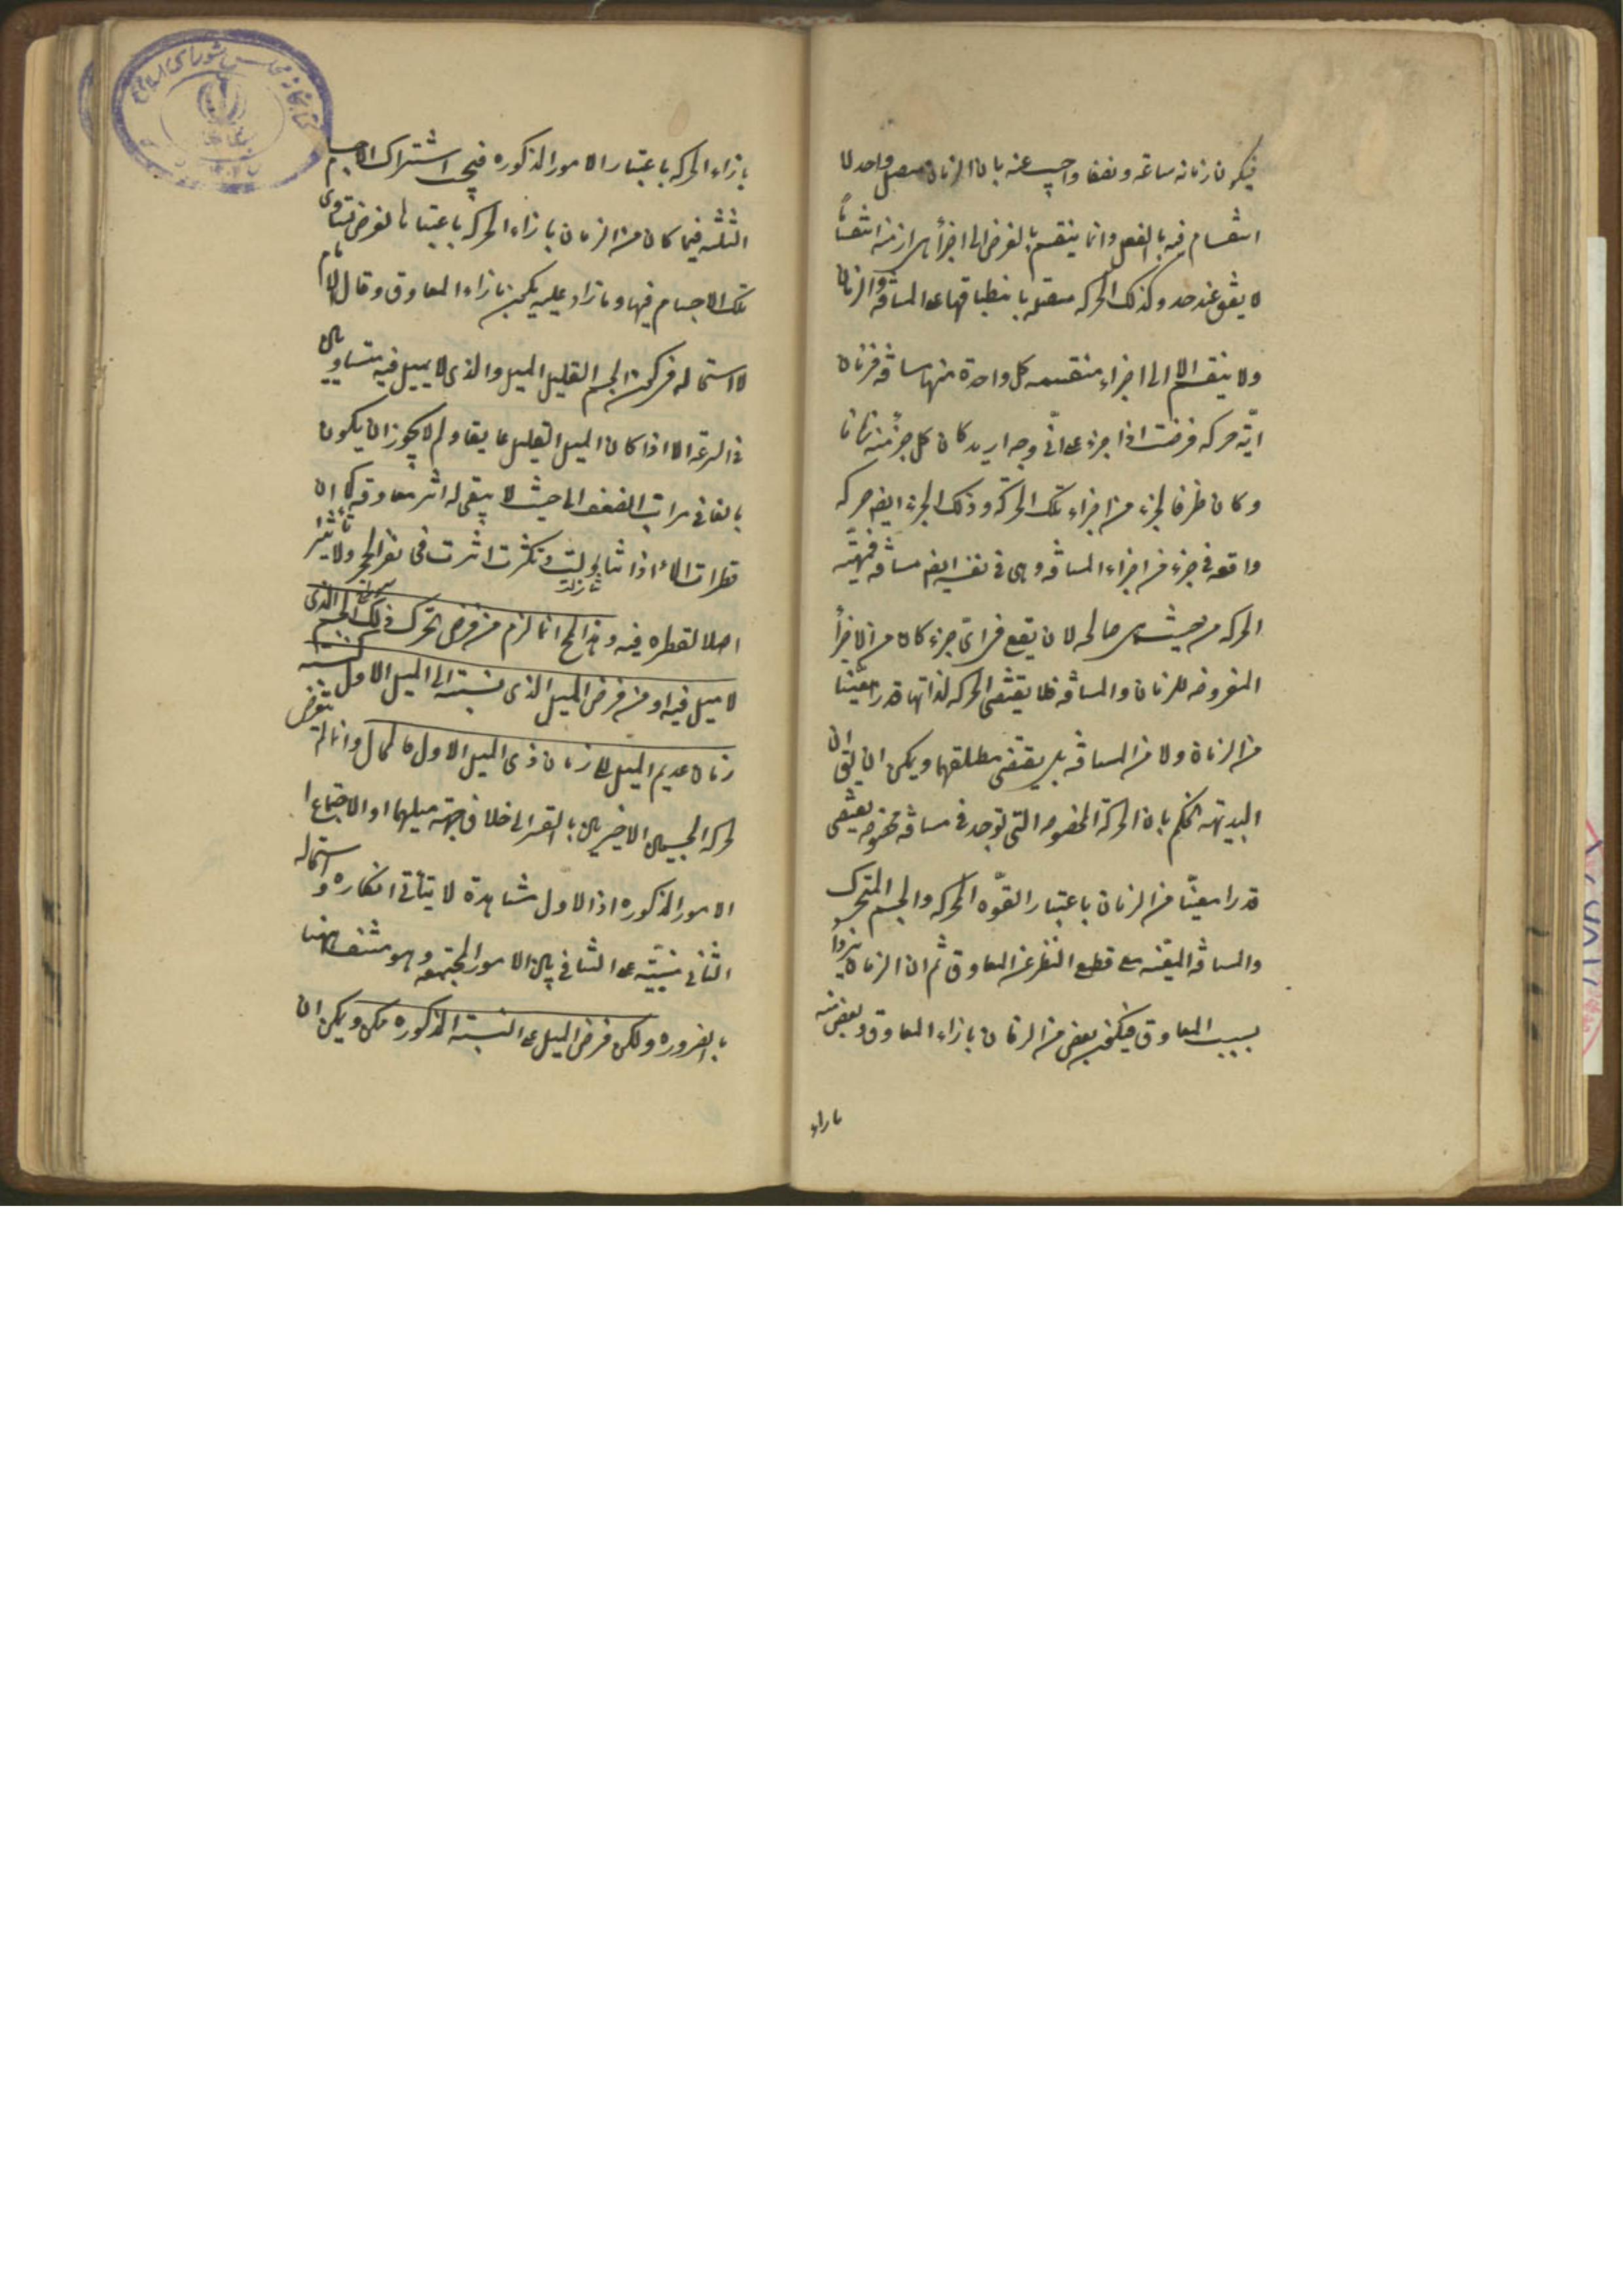 فيكون زمانه ساعة ونصفا واجيب عنه بان الزمان متصل واحد لا
انقسام فيه بالفعل وانما ينقسم بالفرض الى اجزاء هى ازمنة انقساما
لا يقف عند حد وكذلك الحركة متصلة بانطباقها على المسافة والزمان
ولا ينقسم الا الى اجزاء منقسمة كل واحدة منها مسافة فزمان
اية حركة فرضت اذا جزء على اى وجه اريد كان كل جزء منه زمانا
وكان ظرفا لجزء من اجزاء تلك الحركة وذلك الجزء ايضا حركة
واقعة فى جزء من اجزاء المسافة وهى فى نفسه ايضا مسافة فمهية
الحركة من حيث هى صالحة لان تقع فى اى جزء كان من الاجزاء
المفروضة للزمان والمسافة فلا يقتضى الحركة لذاتها قدرا معينا
من الزمان ولا من المسافة بل يقتضى مطلقهما ويمكن ان يق ان
البديهة تحكم بان الحركة المخصوصة التى توجد فى مسافة مخصوصة يقتضى
قدرا معينا من الزمان باعتبار القوة المحركة والجسم المتحرك
والمسافة المعينة مع قطع النظر عن المعاوق ثم ان الزمان يزداد
بسبب المعاوق فيكون بعض من الزمان بازاء المعاوق وبعض منه
بازاء
بازاء الحركة باعتبار الامور المذكورة فيجب اشتراك الاجسام
الثلثة فيما كان من الزمان بازاء الحركة باعتبار ما لفرض تساوى
تلك الاجسام فيها وما زاد عليه يكون بازاء المعاوق وقال الامام
لا استحالة فى كون الجسم القليل الميل والذى لا ميل فيه متساويين
فى السرعة الا اذا كان الميل القليل عايقا ولم لا يجوز ان يكون
بالغا فى مراتب الضعف الى حيث لا يبقى له اثر معاوقة كما ان
قطرات الماء اذا تثاقلت وتكثرت اثرت فى نقر الحجر ولا تاثير
اصلا لقطرة فيه وهذا المح انما لزم من فرض تحرك ذلك الجسم الذى
لا ميل فيه او من فرض الميل الذى نسبته الى الميل الاول كنسبة
زمان عديم الميل الى زمان ذى الميل الاول كالمحال وانما لم يتعرض
لحركة الجسمين الاخيرين بالقسر الى خلاف جهة ميلهما او الاجتماع
الامور المذكورة اذ الاول مشاهدة لا يتأتى انكاره و استحالة
الثانى مبنية على التنافى بين الامور المجتمعة وهو منتف ههنا
بالضرورة ولكن فرض الميل على النسبة المذكورة ممكن ويمكن ان